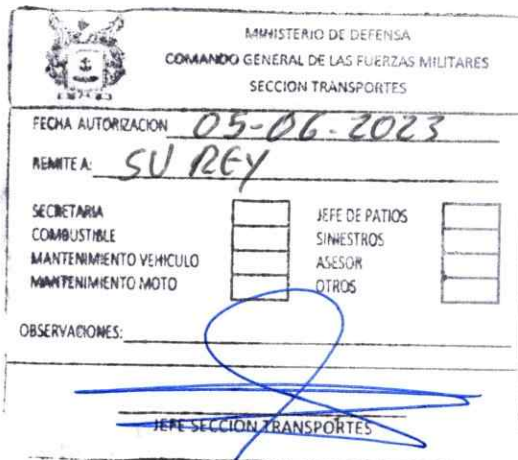 MINISTERIO DE DEFENSA
COMANDO GENERAL DE LAS FUERZAS MILITARES
SECCION TRANSPORTES
FECHA AUTORIZACION 05-06-2023
REMITE A: SU REY
SECRETARIA
COMBUSTIBLE
MANTENIMIENTO VEHICULO
MANTENIMIENTO MOTO
JEFE DE PATIOS
SINIESTROS
ASESOR
OTROS
OBSERVACIONES:
JEFE SECCION TRANSPORTES